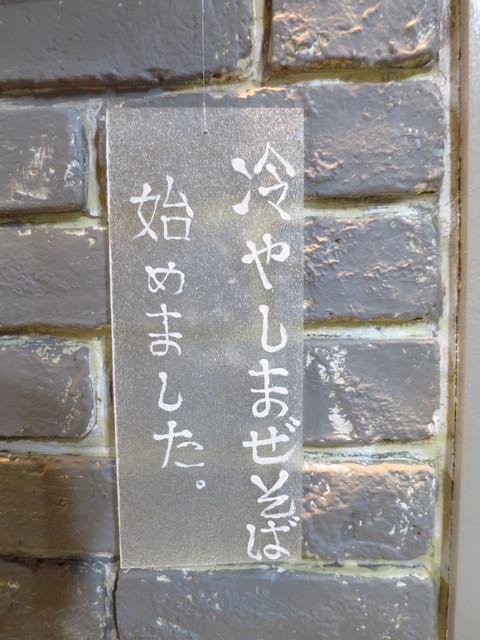 冷やしまぜそば
始めました。